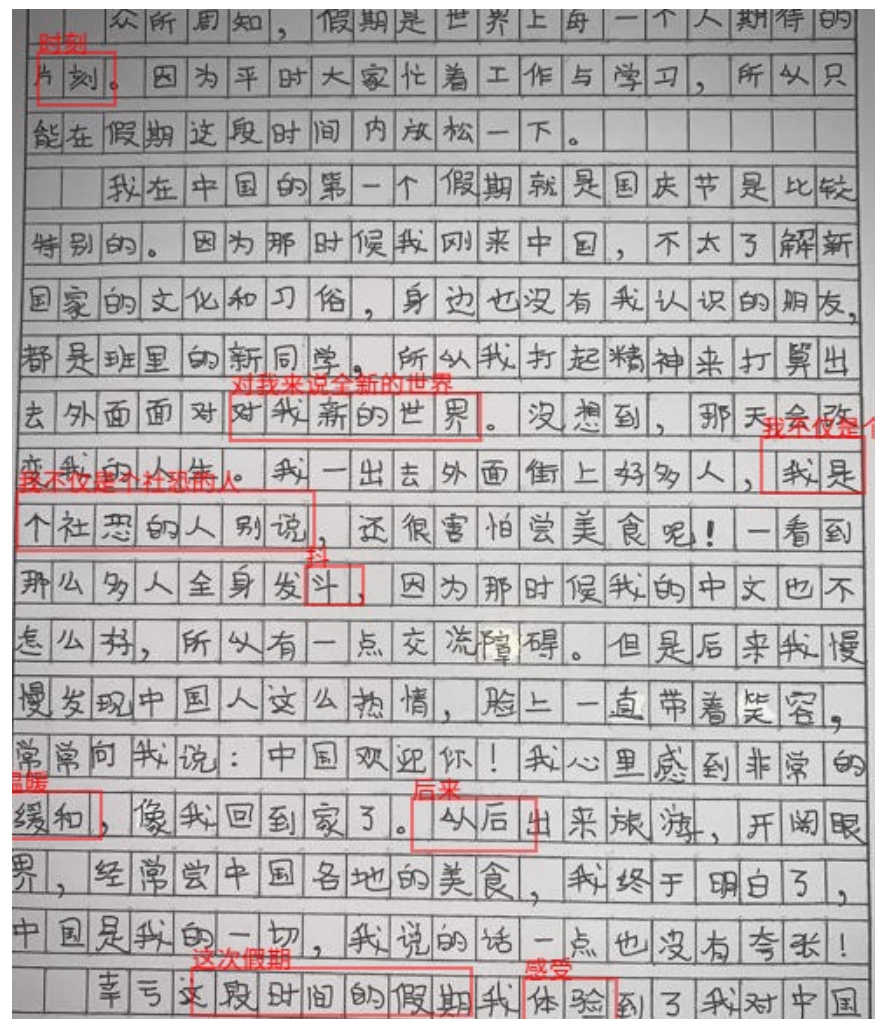 众所周知，假期是世界上每一个人期待的
时刻
片刻。因为平时大家忙着工作与学习，所以只
能在假期这段时间内放松一下。
我在中国的第一个假期就是国庆节是比较
特别的。因为那时候我刚来中国，不太了解新
国家的文化和习俗，身边也没有我认识的朋友，
都是班里的新同学。所以我打起精神来打算出
对我来说全新的世界
去外面面对对我新的世界。没想到，那天会改
我不仅是个
变我的人生。我一出去外面街上好多人，我是
我不仅是个社恐的人
个社恐的人别说，还很害怕尝美食呢！一看到
抖
那么多人全身发斗，因为那时候我的中文也不
怎么好，所以有一点交流障碍。但是后来我慢
慢发现中国人这么热情，脸上一直带着笑容，
常常向我说：中国欢迎你！我心里感到非常的
温暖
后来
缓和，像我回到家了。从后出来旅游，开阔眼
界，经常尝中国各地的美食，我终于明白了，
中国是我的一切，我说的话一点也没有夸张！
这次假期
感受
幸亏这段时间的假期我体验到了我对中国